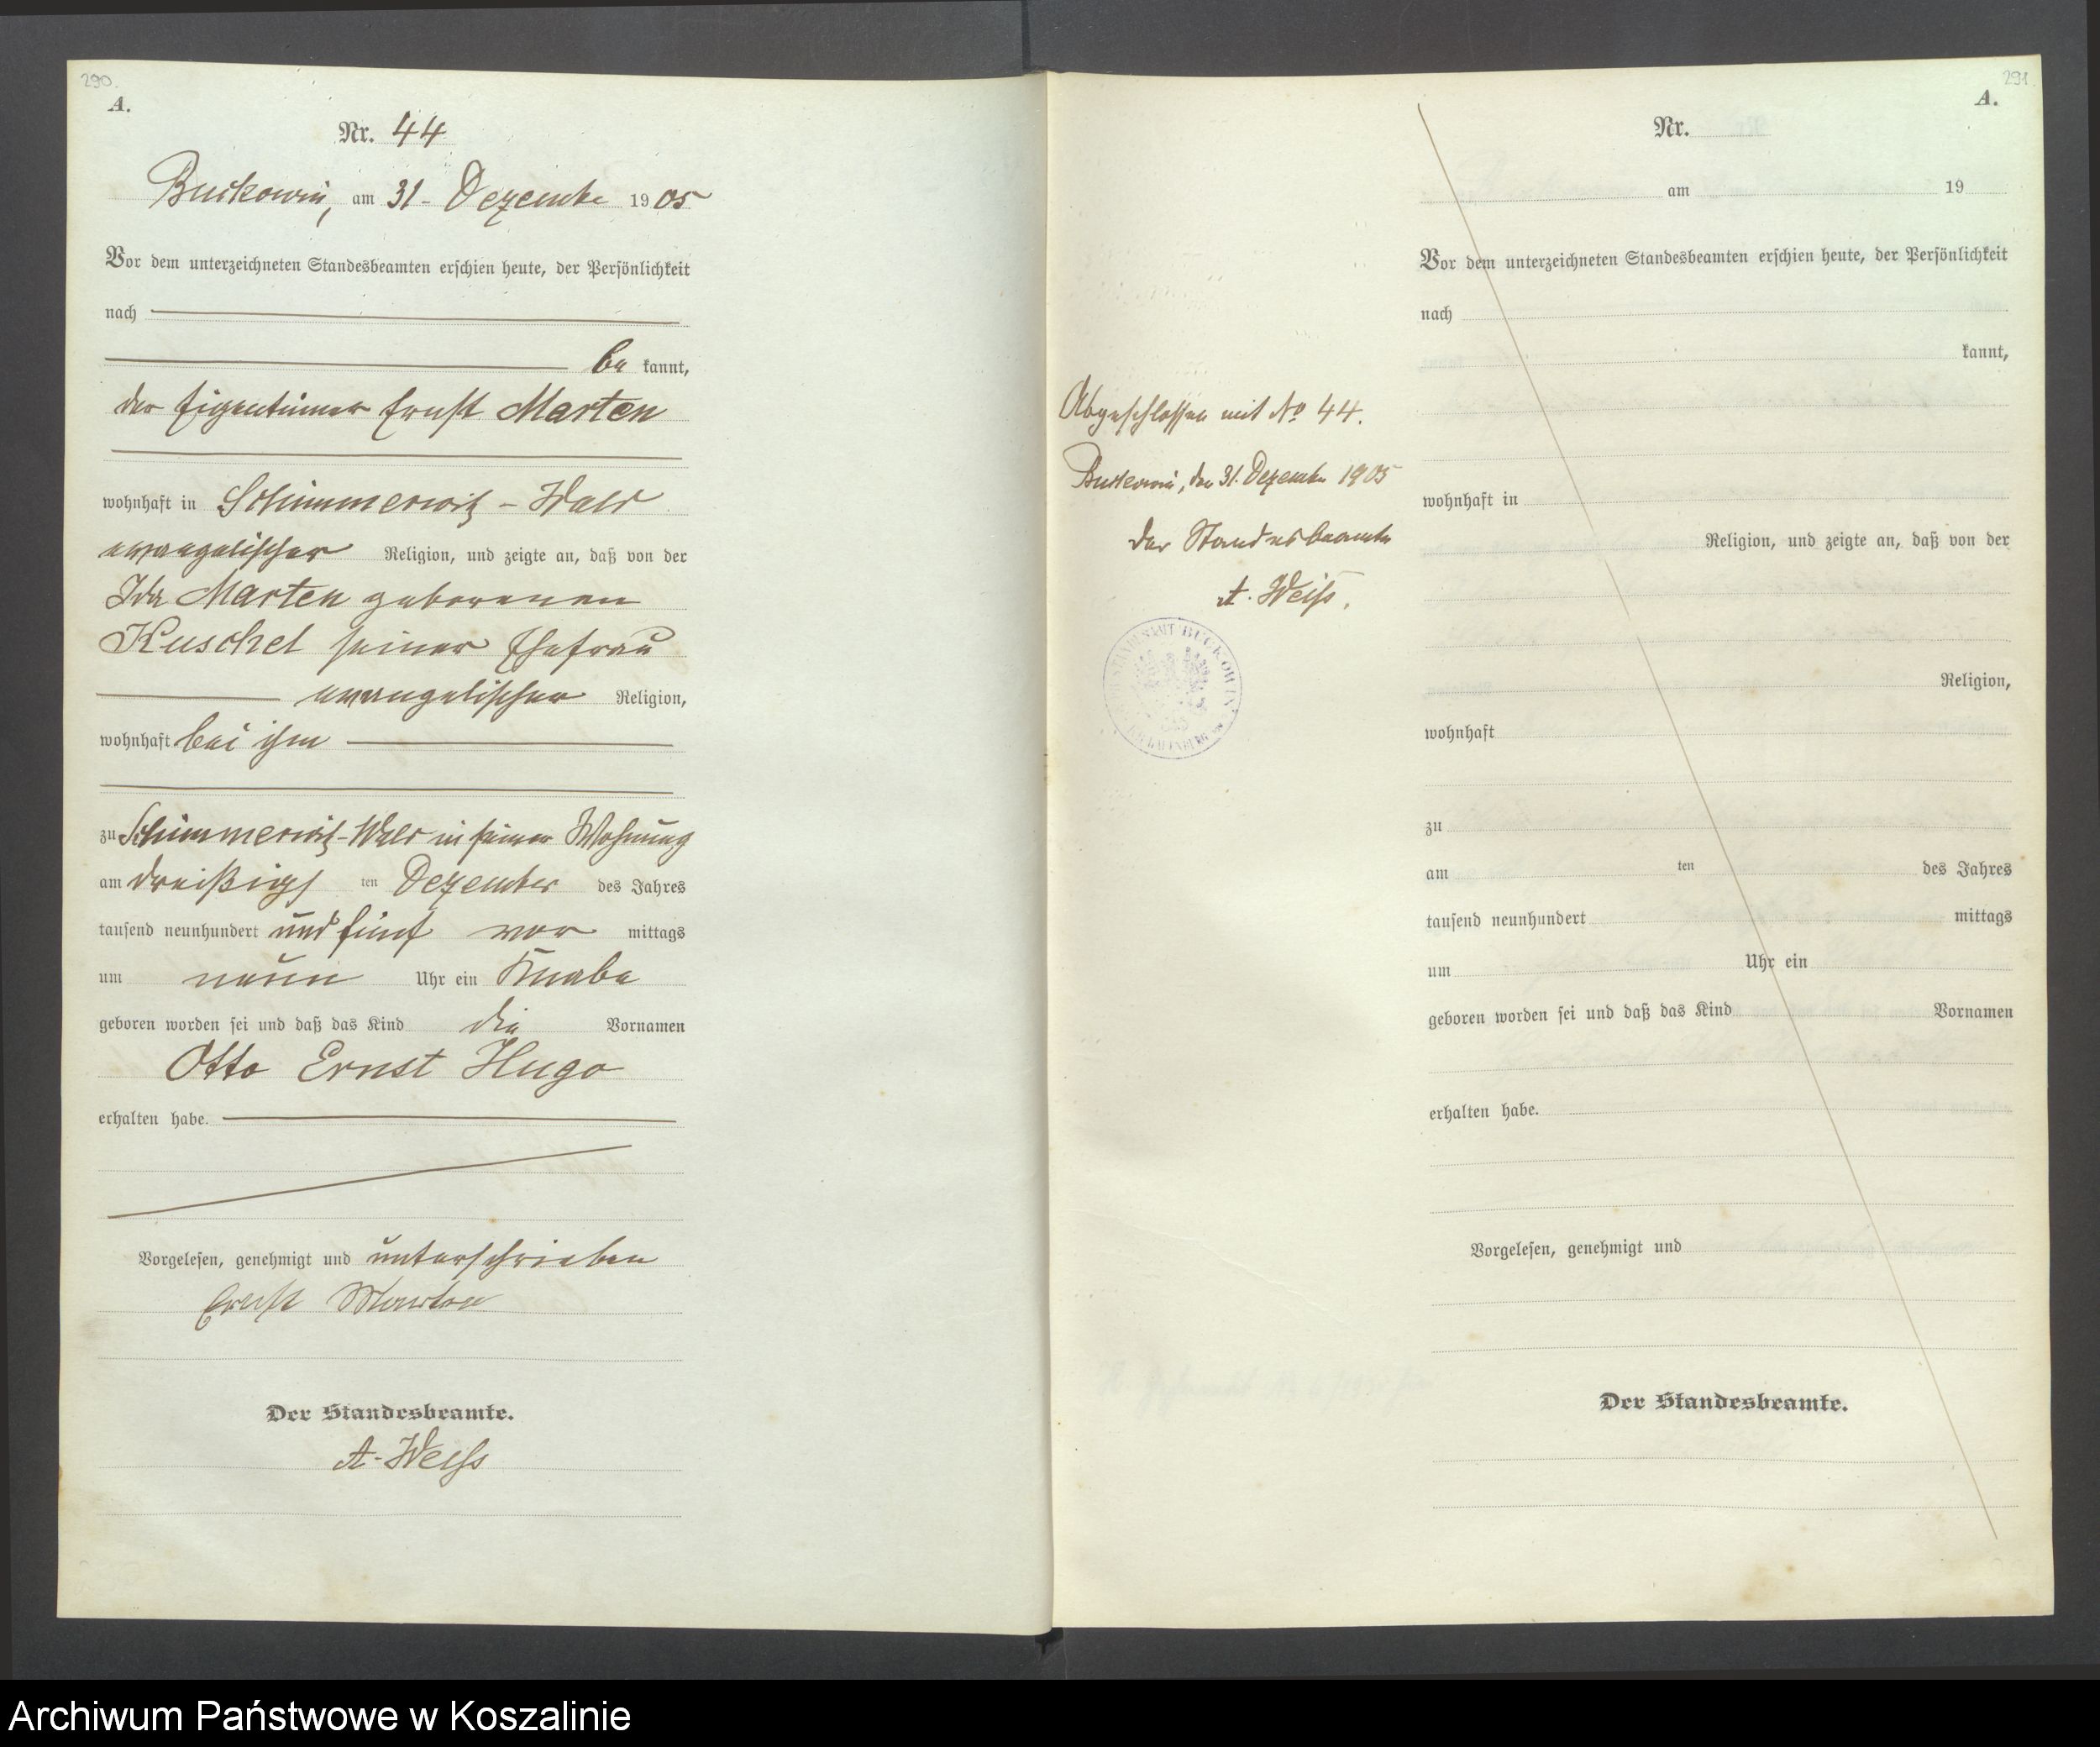 290.
A.
Nr. 44
Buckowin, am 31. Dezember 1905
Vor dem unterzeichneten Standesbeamten erschien heute, der Persönlichkeit
nach
be kannt,
der Eigentümer Ernst Marten
wohnhaft in Schimmerwitz-Wald
evangelischer Religion, und zeigte an, daß von der
Ida Marten geborenen
Kuschel seiner Ehefrau
evangelischer Religion,
wohnhaft bei ihm
zu Schimmerwitz-Wald in seiner Wohnung
am dreißigs ten Dezember des Jahres
tausend neunhundert und fünf vor mittags
um neun Uhr ein Knabe
geboren worden sei und daß das Kind die Vornamen
Otto Ernst Hugo
erhalten habe.
Vorgelesen, genehmigt und unterschrieben
Ernst Marten
Der Standesbeamte.
A. Weiß
291
A.
Nr.
am 19
Vor dem unterzeichneten Standesbeamten erschien heute, der Persönlichkeit
nach
kannt,
wohnhaft in
Religion, und zeigte an, daß von der
Religion,
wohnhaft
zu
am ten des Jahres
tausend neunhundert mittags
um Uhr ein
geboren worden sei und daß das Kind Vornamen
erhalten habe.
Vorgelesen, genehmigt und
Der Standesbeamte.
Abgeschlossen mit No 44.
Buckowin, den 31. Dezember 1905
Der Standesbeamte
A. Weiß.
BUCKOWIN
Archiwum Państwowe w Koszalinie